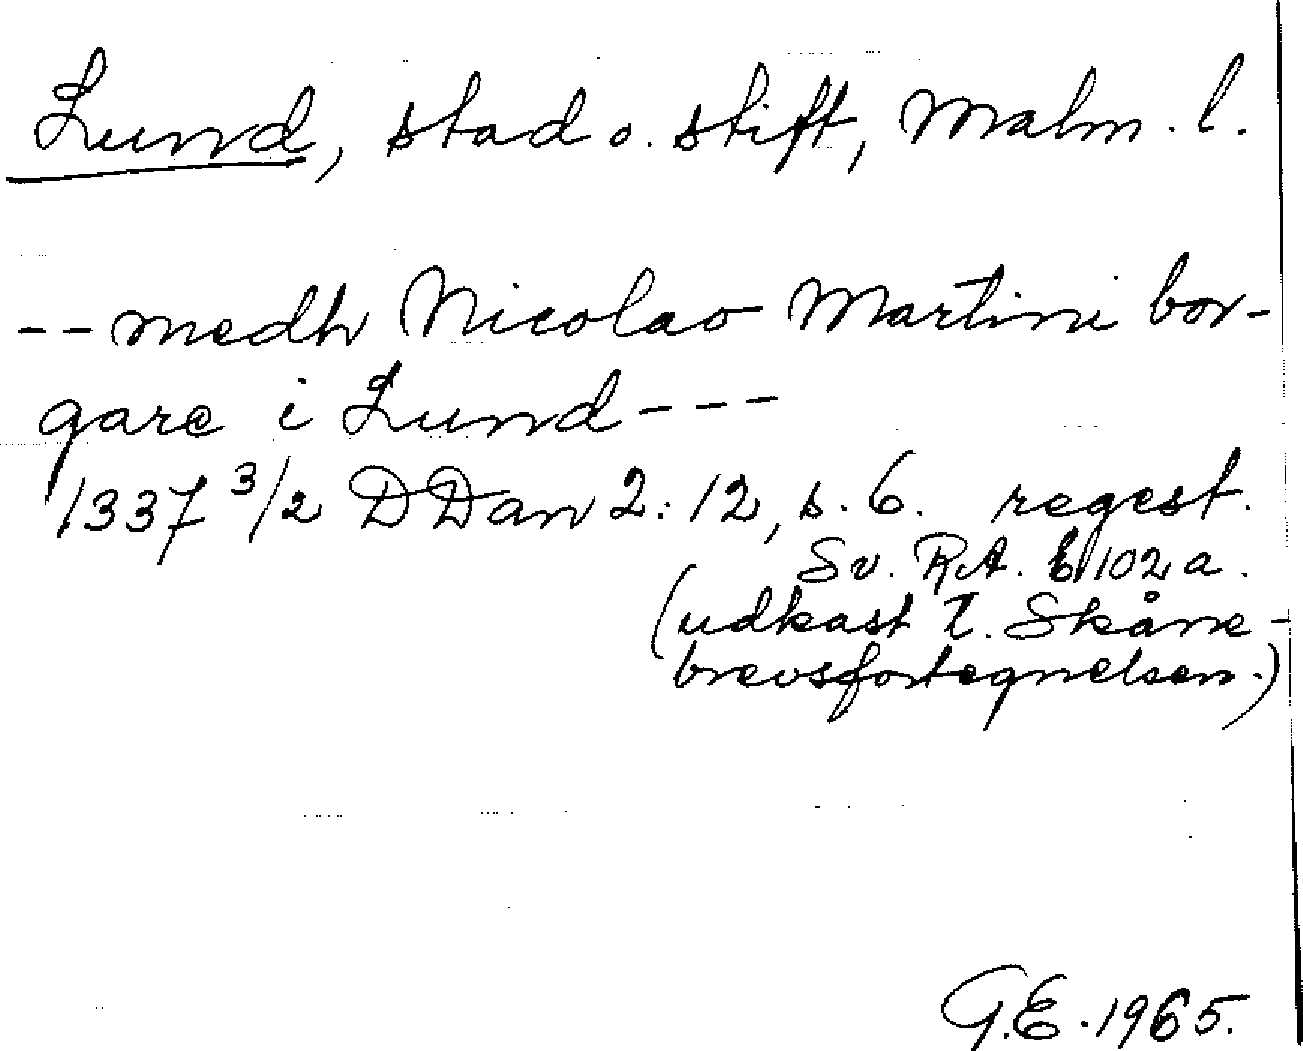 Lund, stad o. stift, Malm. l.
-- medh Nicolao Martini bor-
gare i Lund ---
1337 3/2 DDan 2:12, s. 6. regest.
Sv. R.A. E 102 a.
(udkast t. Skåne-
brevsfortegnelsen.)
G.E. 1965.